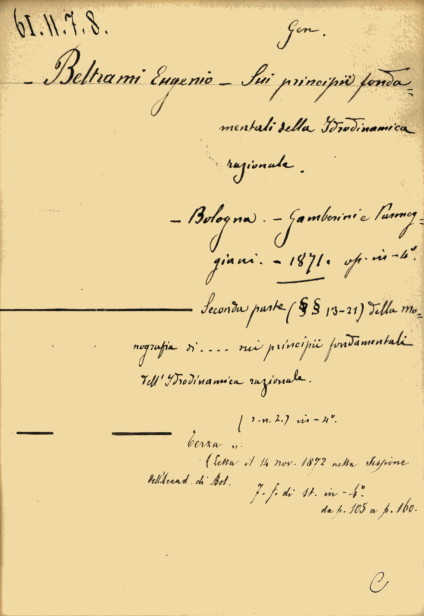 61.11.7.8.
Gen.
– Beltrami Eugenio – Sui principii fonda=
mentali della Idrodinamica
razionale.
– Bologna. – Gamberini e Parmeg=
giani. – 1871. op. in-4°.
Seconda parte (§§ 13-21) della mo=
nografia di .... nei principii fondamentali
dell'Idrodinamica razionale.
in-4°.
Terza „
(Letta il 14 nov. 1872 nella Sessione
dell'Accad. di Bol.
7. f. di st. in-4°
da p. 105 a p. 160.
C